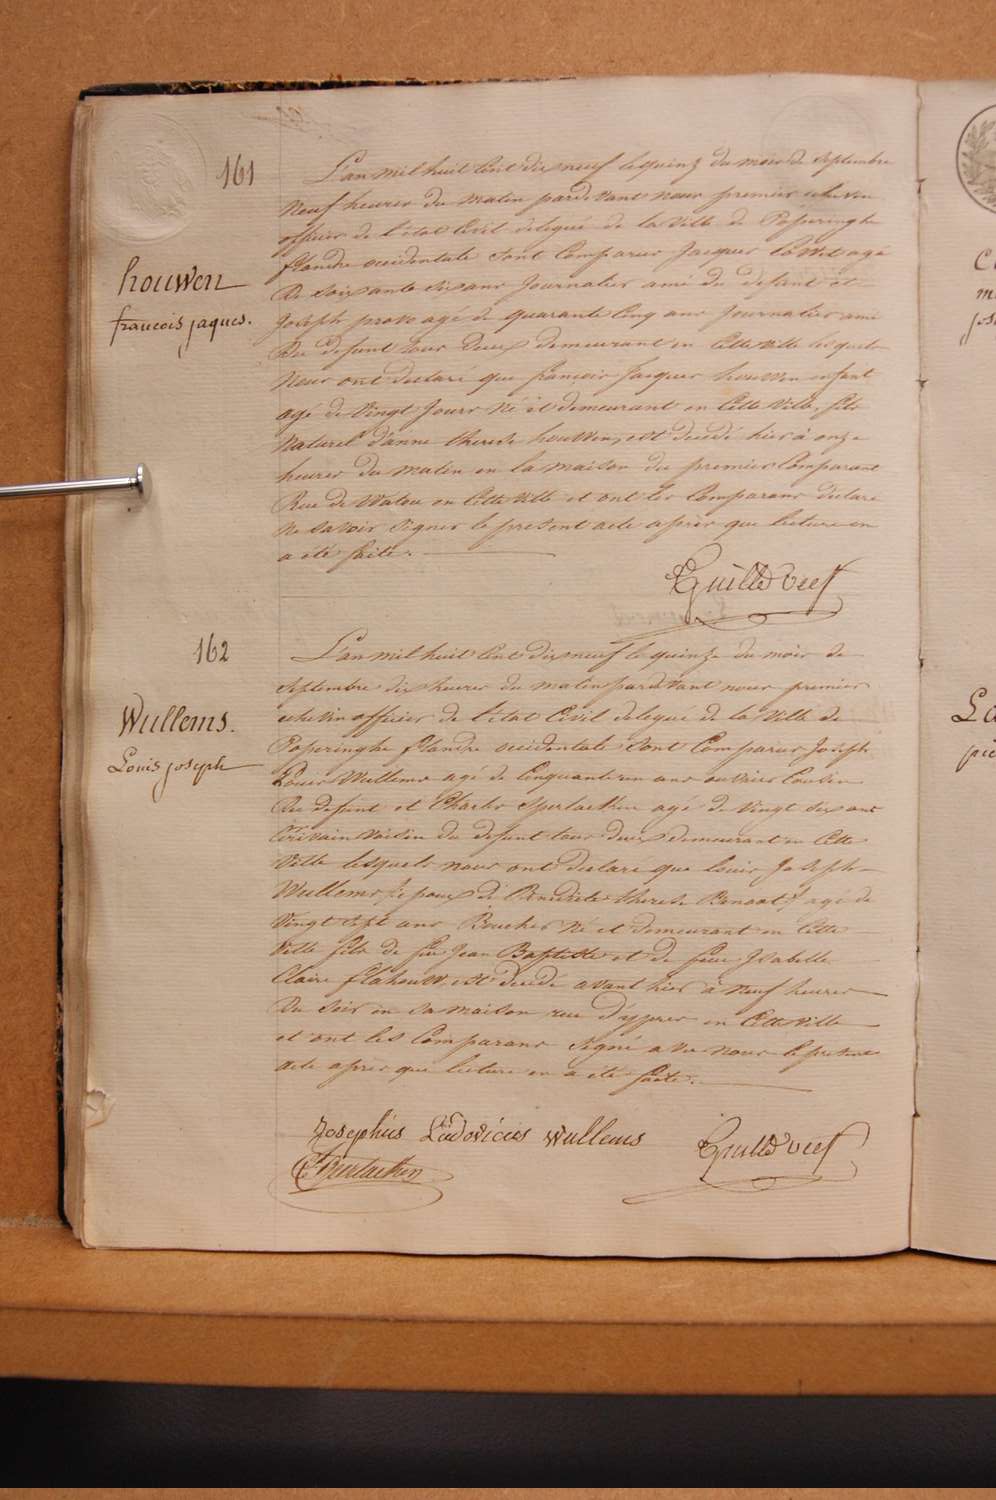 161
L'an mil huit Cent dix neuf le quinz du mois de Septembre
Neuf heures du matin pardevant nous premier echevin
officier de l'état Civil delegué de la Ville de Poperinghe
flandre occidentale Sont Comparus Jacques agé
De Soixante Six ans Journalier ami du defunt et
Joseph provo agé de quarante Cinq ans Journalier ami
Du defunt tous deux demeurant en Cette Ville lesquels
Nous ont declaré que francois Jacques houwen enfant
agé de Vingt Jours Né et demeurant en Cette Ville, fils
Naturel d'anne therese houwen, est decedé hier à onze
heures du matin en la maison du premier Comparant
Rue de Watou en Cette Ville et ont les Comparans declaré
Ne Savoir Signer le present acte après que lecture en
a été faite.
houwen
francois jaques.
162
L'an mil huit Cent dix neuf le quinze du mois de
Septembre dix heures du matin pardevant nous premier
echevin officier de l'état Civil delegué de la Ville de
Poperinghe flandre occidentale Sont Comparus Joseph
Louis Willems agé de Cinquante un ans ouvrier Cousin
Du defunt et Charles Sperlaeken agé de Vingt Six ans
Ecrivain Voisin du defunt tous deux demeurant en Cette
Ville lesquels nous ont declaré que Louis Joseph
Wullems, Epoux de Benedicte therese Benoot, agé de
Vingt Sept ans Boucher Né et demeurant en Cette
Ville fils de feu Jean Baptiste et de feue Isabelle
Claire flahouw, est decedé avant hier à Neuf heures
Du Soir en Sa maison rue d'ypres en Cette Ville
et ont les Comparans Signé avec nous le present
acte apres que lecture en a été faite.
Wullems.
Louis joseph
Josephus Ludovicus wullems